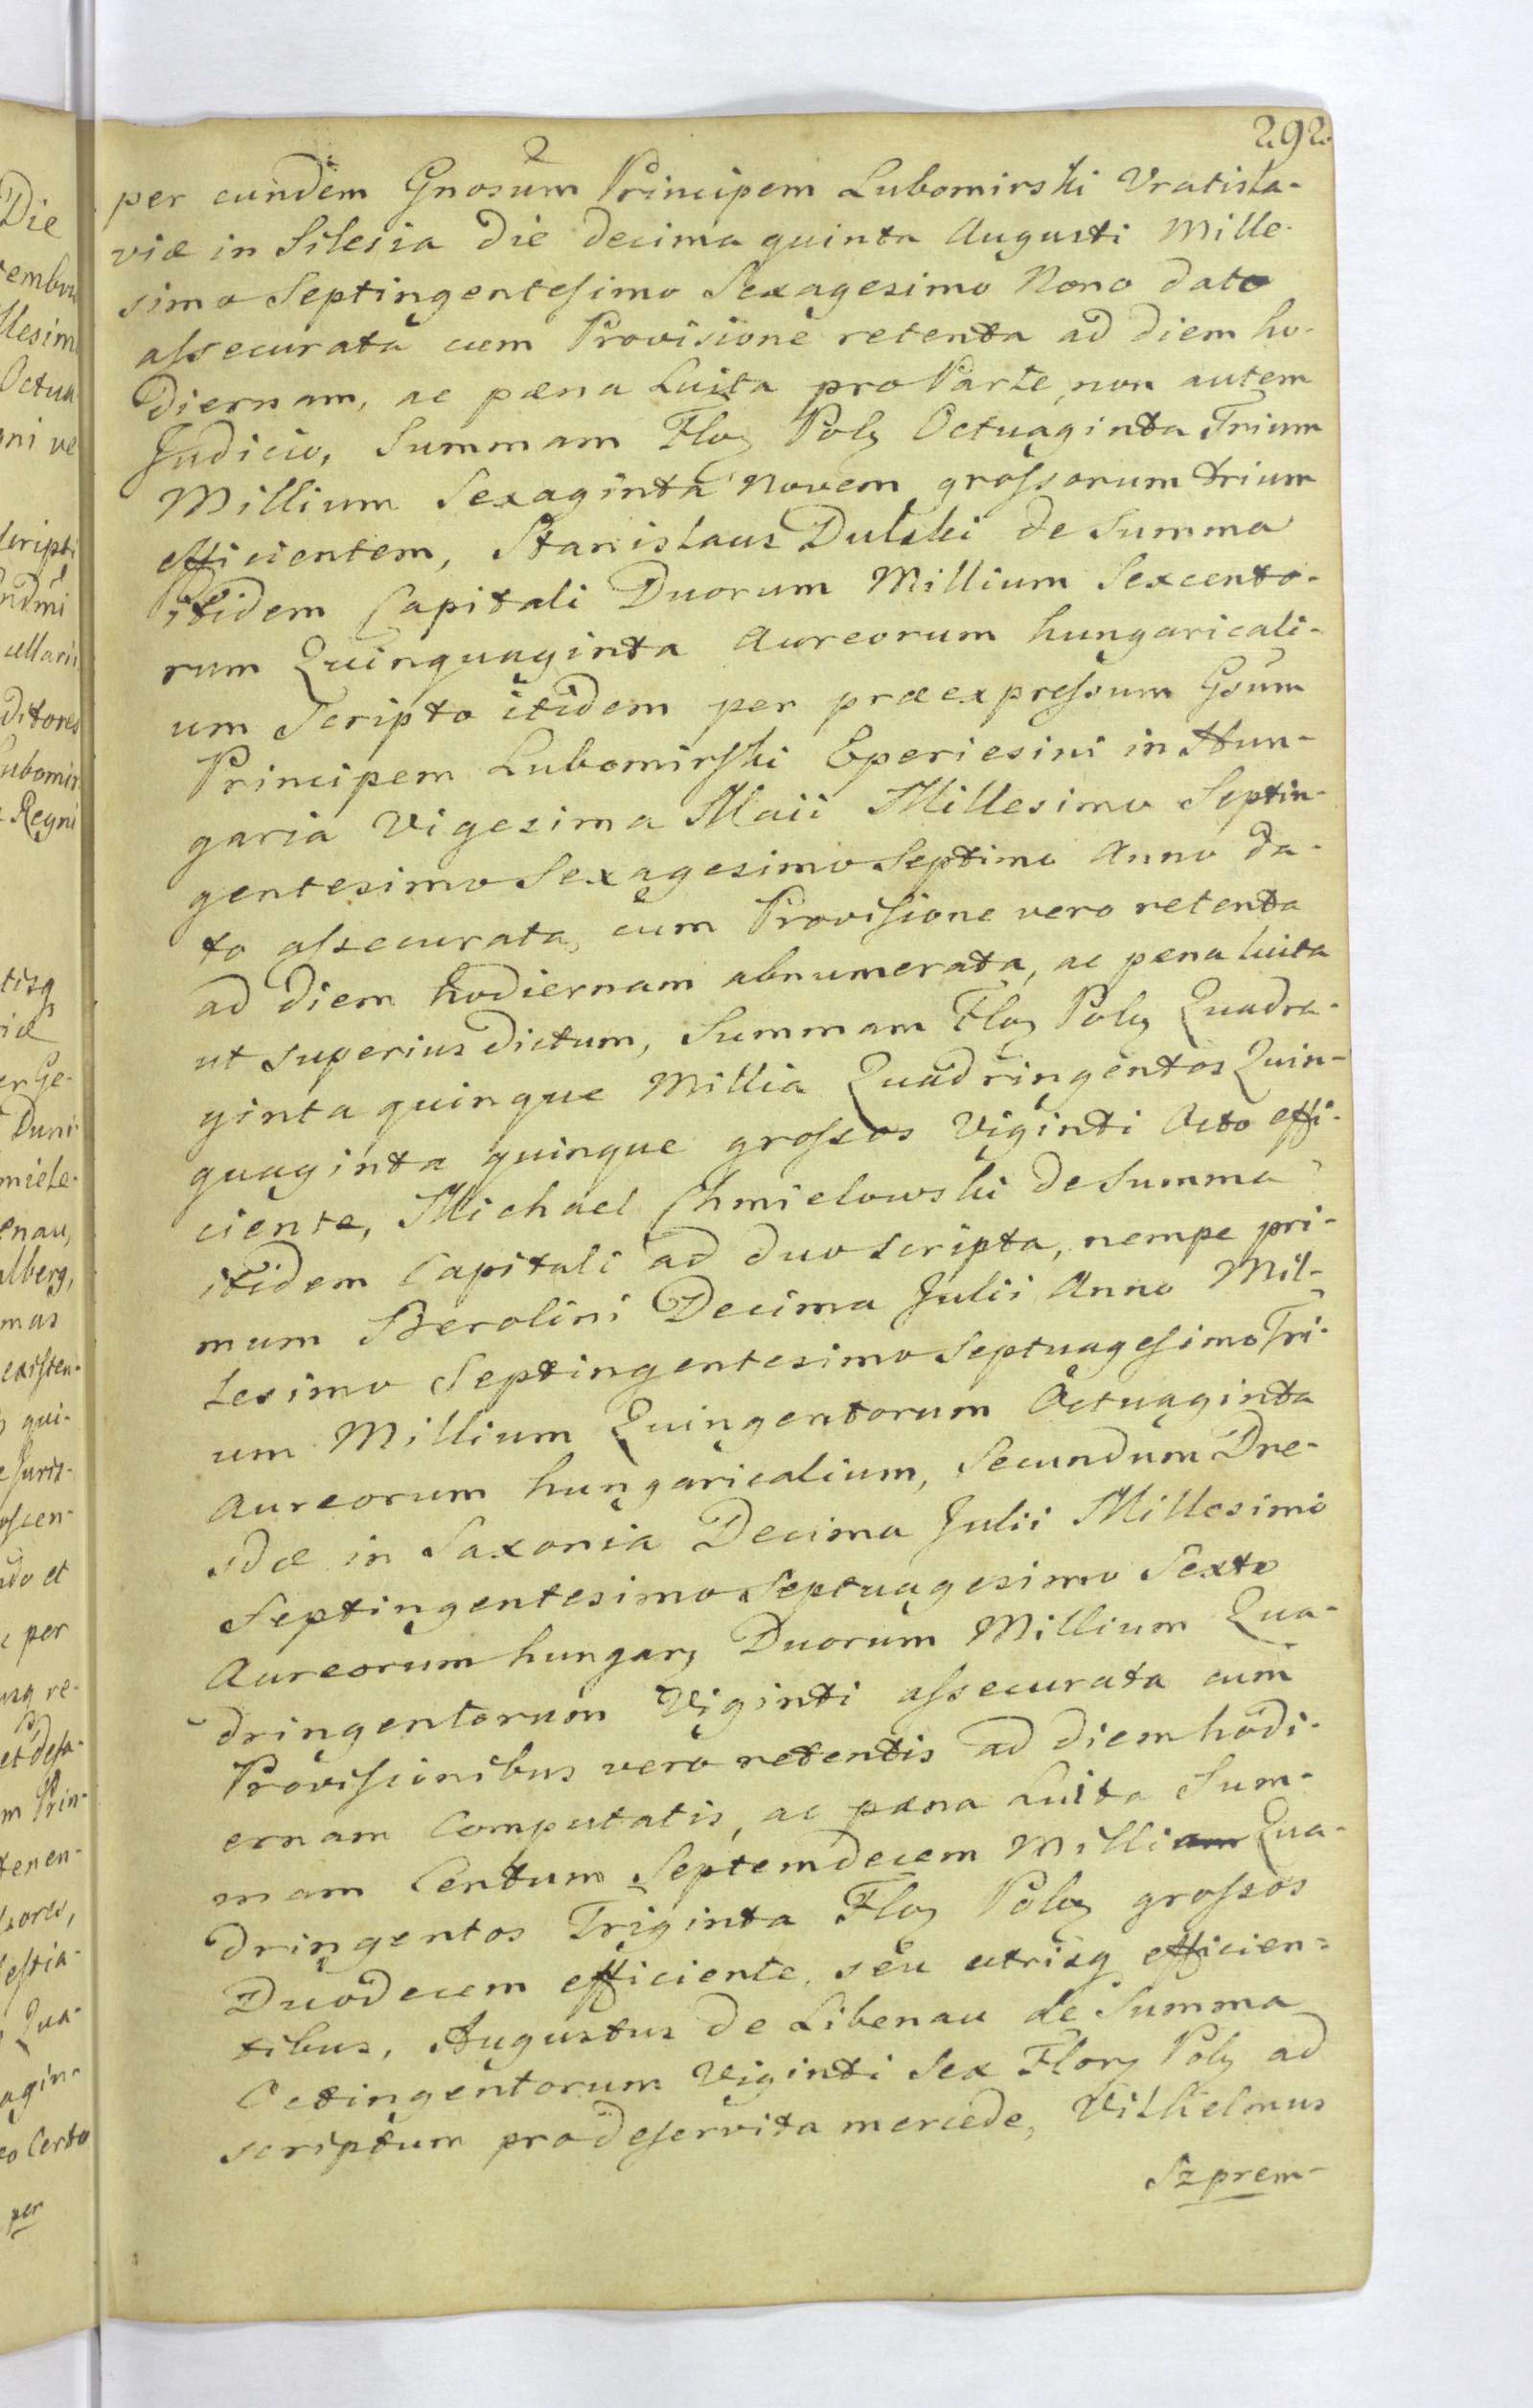 292.
2
per eundem Gnosum Principem Lubomirski Vratisla-
viæ in Silesia die decima quinta Augusti Mille-
simo Septingentesimo Sexagesimo Nono dato
assecurata cum Provisione retenta ad diem ho-
diernam, ac pæna luita pro Parte, non autem
Judicio, Summam Floꝫ Polꝫ Octuaginta Trium
Millium Sexaginta Novem grossorum trium
efficientem, Stanislaus Dulski de Summa
itidem Capitali Duorum Millium Sexcento-
rum Quinquaginta Aureorum hungaricali-
um Scripto itidem per præexpressum Gsum
Principem Lubomirski Eperiesini in Hun-
garia Vigesima Maii Millesimo Septin-
gentesimo Sexagesimo Septimo Anno da-
to assecurata, cum Provisione vero retenta
ad diem hodiernam abnumerata, ac pæna luita
ut superius dictum, Summam Floꝫ Polꝫ Quadra-
ginta quinque Millia Quadringentos Quin-
quaginta quinque grossos Viginti Octo effi-
ciente, Michael Chmielowski de Summa
itidem Capitali ad duo Scripta, nempe pri-
mum Berolini Decima Julii Anno Mil-
lesimo Septingentesimo Septuagesimo Tri-
um Millium Quingentorum Octuaginta
Aureorum hungaricalium, Secundum Dre-
sdæ in Saxonia Decima Julii Millesimo
Septingentesimo Septuagesimo Sexto
Aureorum hungarꝫ Duorum Millium Qua-
dringentorum Viginti assecurata cum
Provisionibus vero retentis ad diem hodi-
ernam Computatis, ac pæna luita Sum-
mam Centum Septemdecem Milliam Qua-
dringentos Triginta Floꝫ Polꝫ grossos
Duodecem efficiente, seu utrisq efficien-
tibus, Augustus de Libenau de Summa
Octingentorum Viginti Sex Florꝫ Polꝫ ad
scriptum pro deservita mercede, Vilhelmus
Szprem-